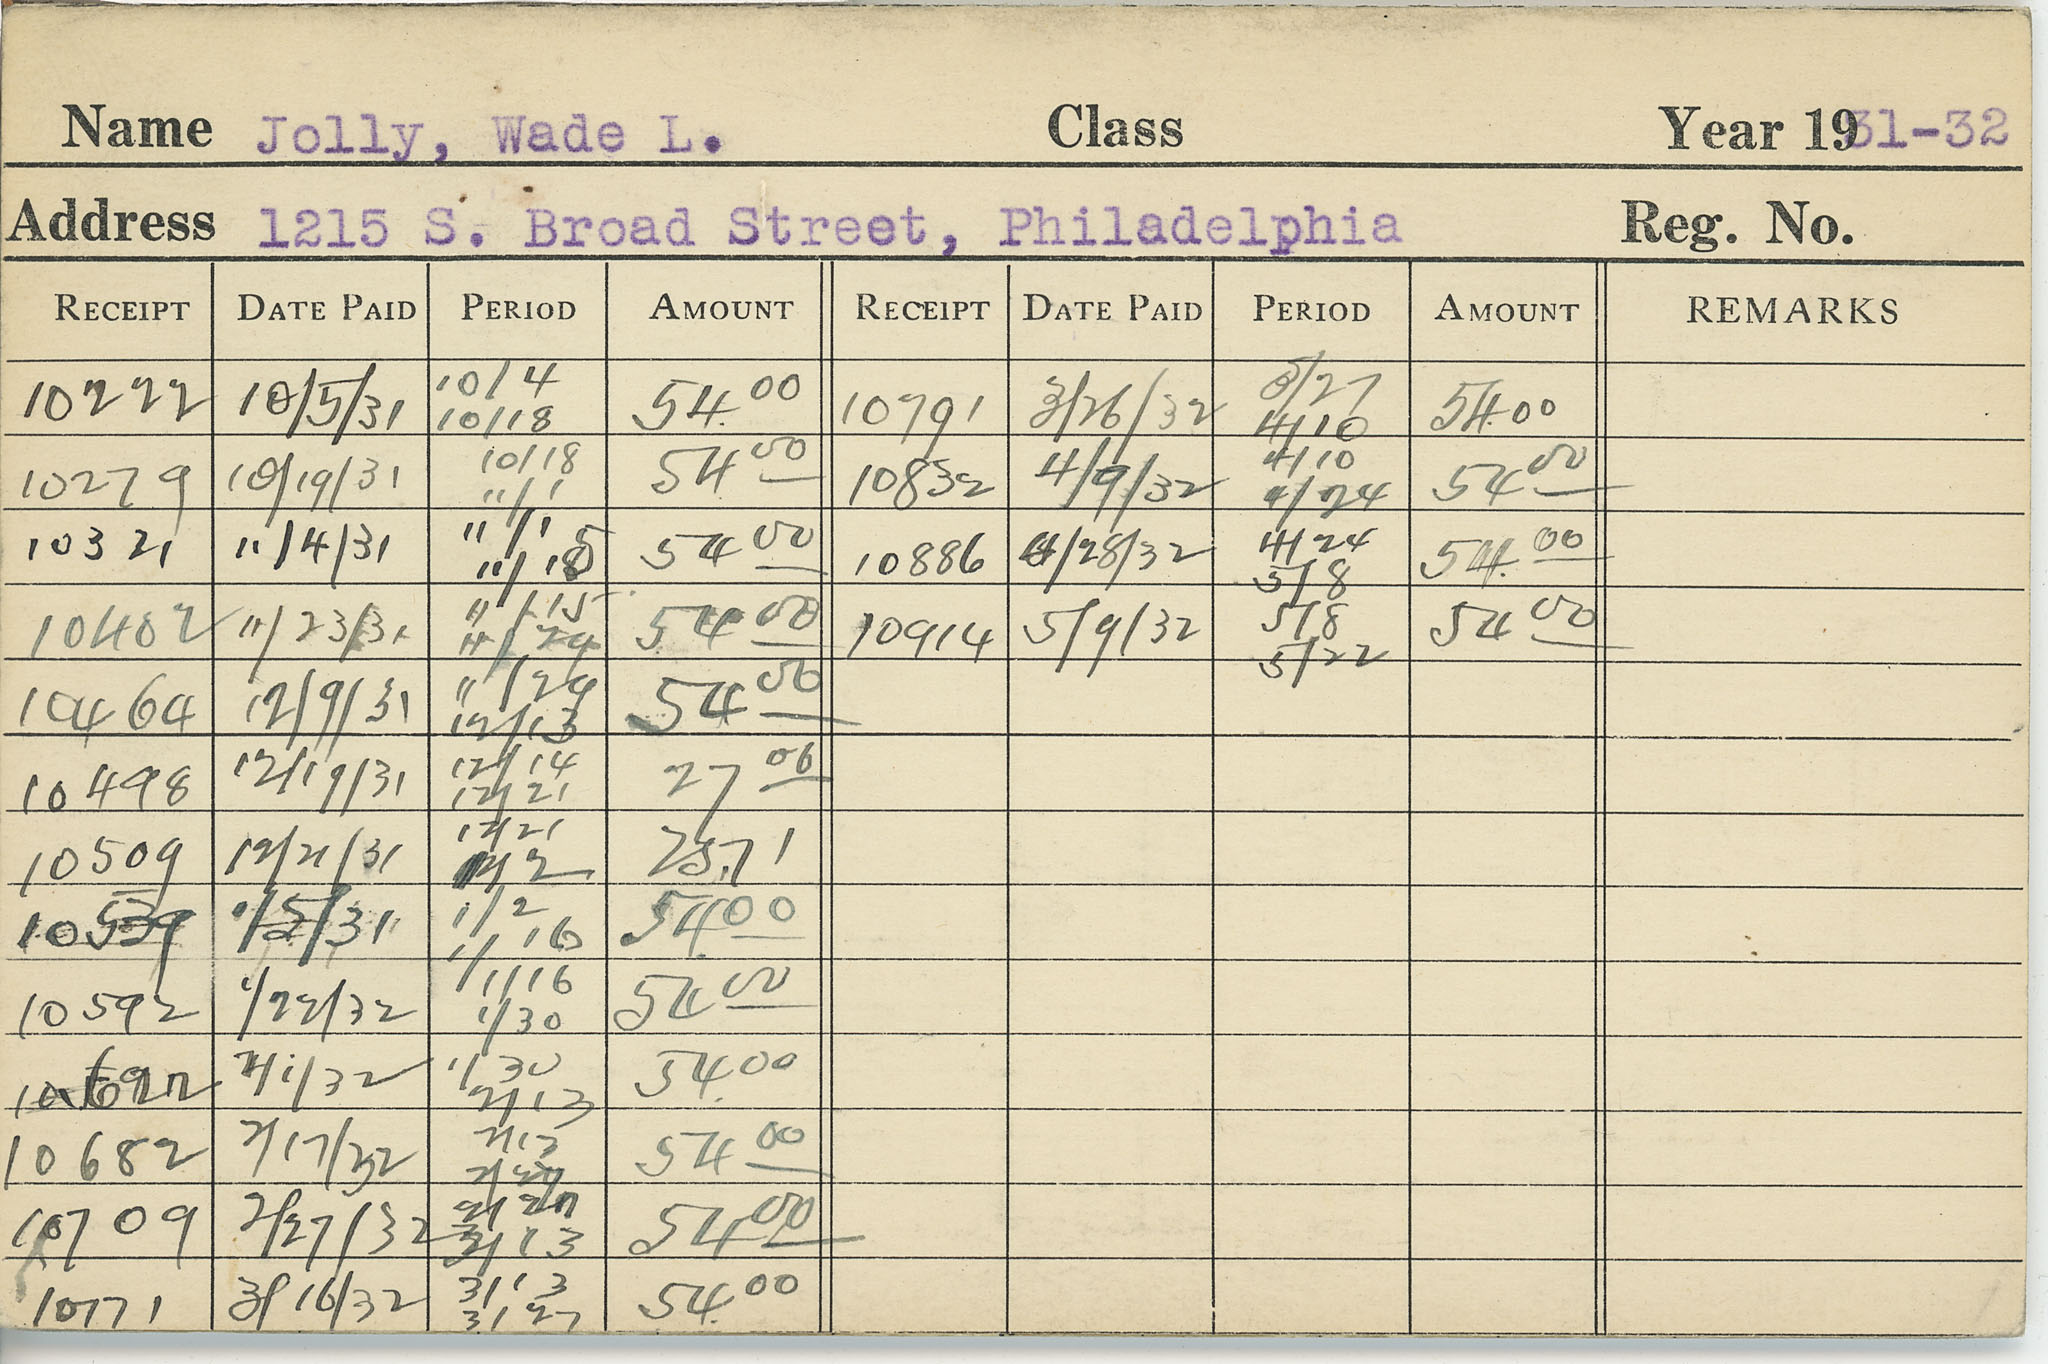 Name Jolly, Wade L. Class Year 1931-32
Address 1215 S. Broad Street, Philadelphia Reg. No.
RECEIPT DATE PAID PERIOD AMOUNT RECEIPT DATE PAID PERIOD AMOUNT REMARKS
10222 10/5/31 10/4 10/18 54.00 10791 3/26/32 3/27 4/10 54.00
10279 10/19/31 10/18 11/1 54 00 10832 4/9/32 4/10 4/24 54 00
10321 11/4/31 11/1 11/15 54 00 10886 4/28/32 4/24 5/8 54.00
10402 11/23/31 11/15 11/29 54 00 10914 5/9/32 5/8 5/22 54 00
10464 12/9/31 11/29 12/13 54 00
10498 12/19/31 12/14 12/21 27 00
10509 12/21/31 12/21 1/2 25.71
10539 1/5/31 1/2 1/16 54.00
10592 1/22/32 1/16 1/30 54 00
2/1/32 1/30 2/13 54.00
10682 2/17/32 2/13 2/27 54.00
10709 2/27/32 2/27 3/13 54 00
10771 3/16/32 3/13 3/27 54.00